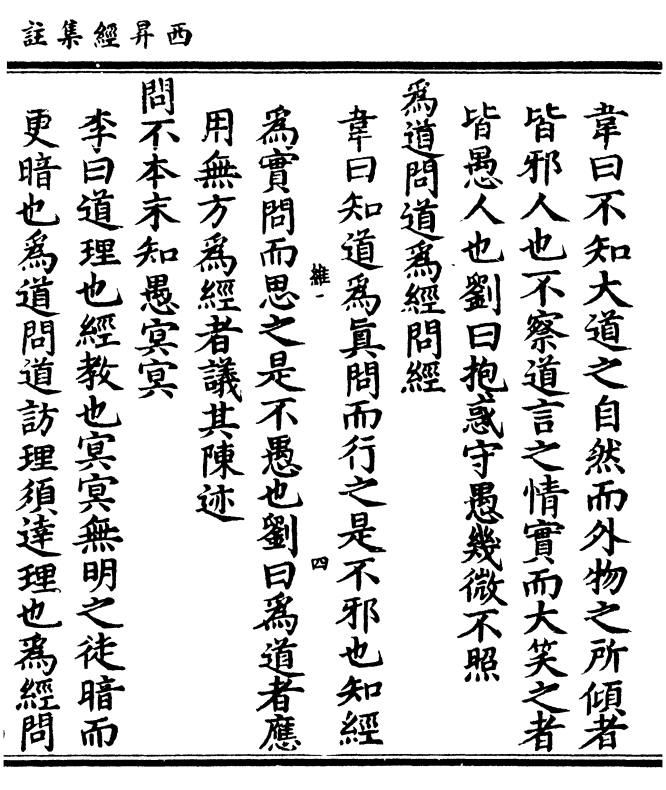 西昇經集註
韋曰不知大道之自然而外物之所傾者
皆邪人也不察道言之情實而大笑之者
皆愚人也劉曰抱惑守愚幾微不照
爲道問道爲經問經
韋曰知道爲眞問而行之是不邪也知經
維一
四
爲實問而思之是不愚也劉曰爲道者應
用無方爲經者議其陳迹
問不本末知愚冥冥
李曰道理也經教也冥冥無明之徒暗而
更暗也爲道問道訪理須達理也爲經問